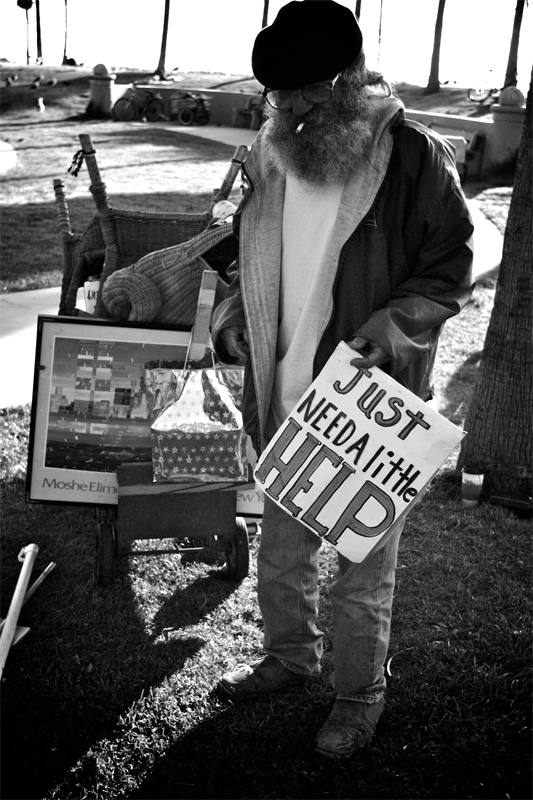 JUST
NEED A little
HELP
Moshe Elim
New York